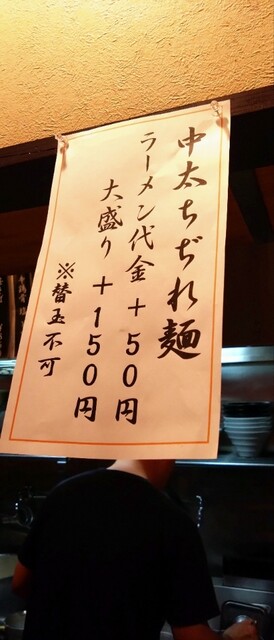 中太ちぢれ麺
ラーメン代金+50円
大盛り+150円
※替玉不可